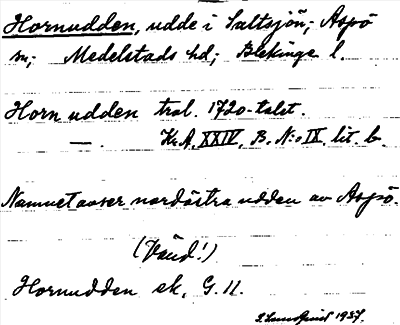 Hornudden, udde i Saltsjön; Aspö
sn; Medelstads hd; Blekinge l.
Hornudden trol. 1720-talet.
— . Kr.A. XXIV, B. N:o IX, lit. b.
Namnet avser nordöstra udden av Aspö.
(Vänd!)
Hornudden ek. G. 11.
1937.